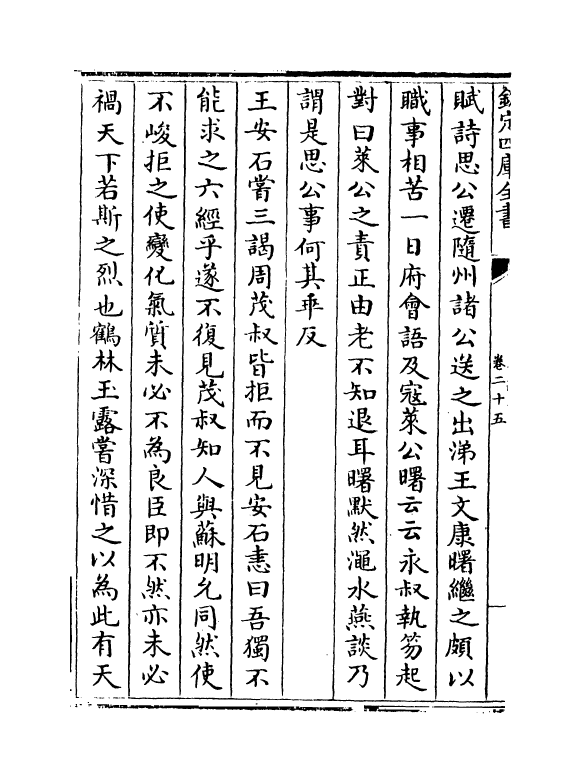 欽定四庫全書
卷二十五
賦詩思公遷隨州諸公送之出涕王文康曙繼之頗以
職事相苦一日府會語及寇萊公曙云云永叔執笏起
對曰萊公之責正由老不知退耳曙默然澠水燕談乃
謂是思公事何其乖反
王安石嘗三謁周茂叔皆拒而不見安石恚曰吾獨不
能求之六經乎遂不復見茂叔知人與蘇明允同然使
不峻拒之使變化氣質未必不為良臣即不然亦未必
禍天下若斯之烈也鶴林玉露嘗深惜之以為此有天